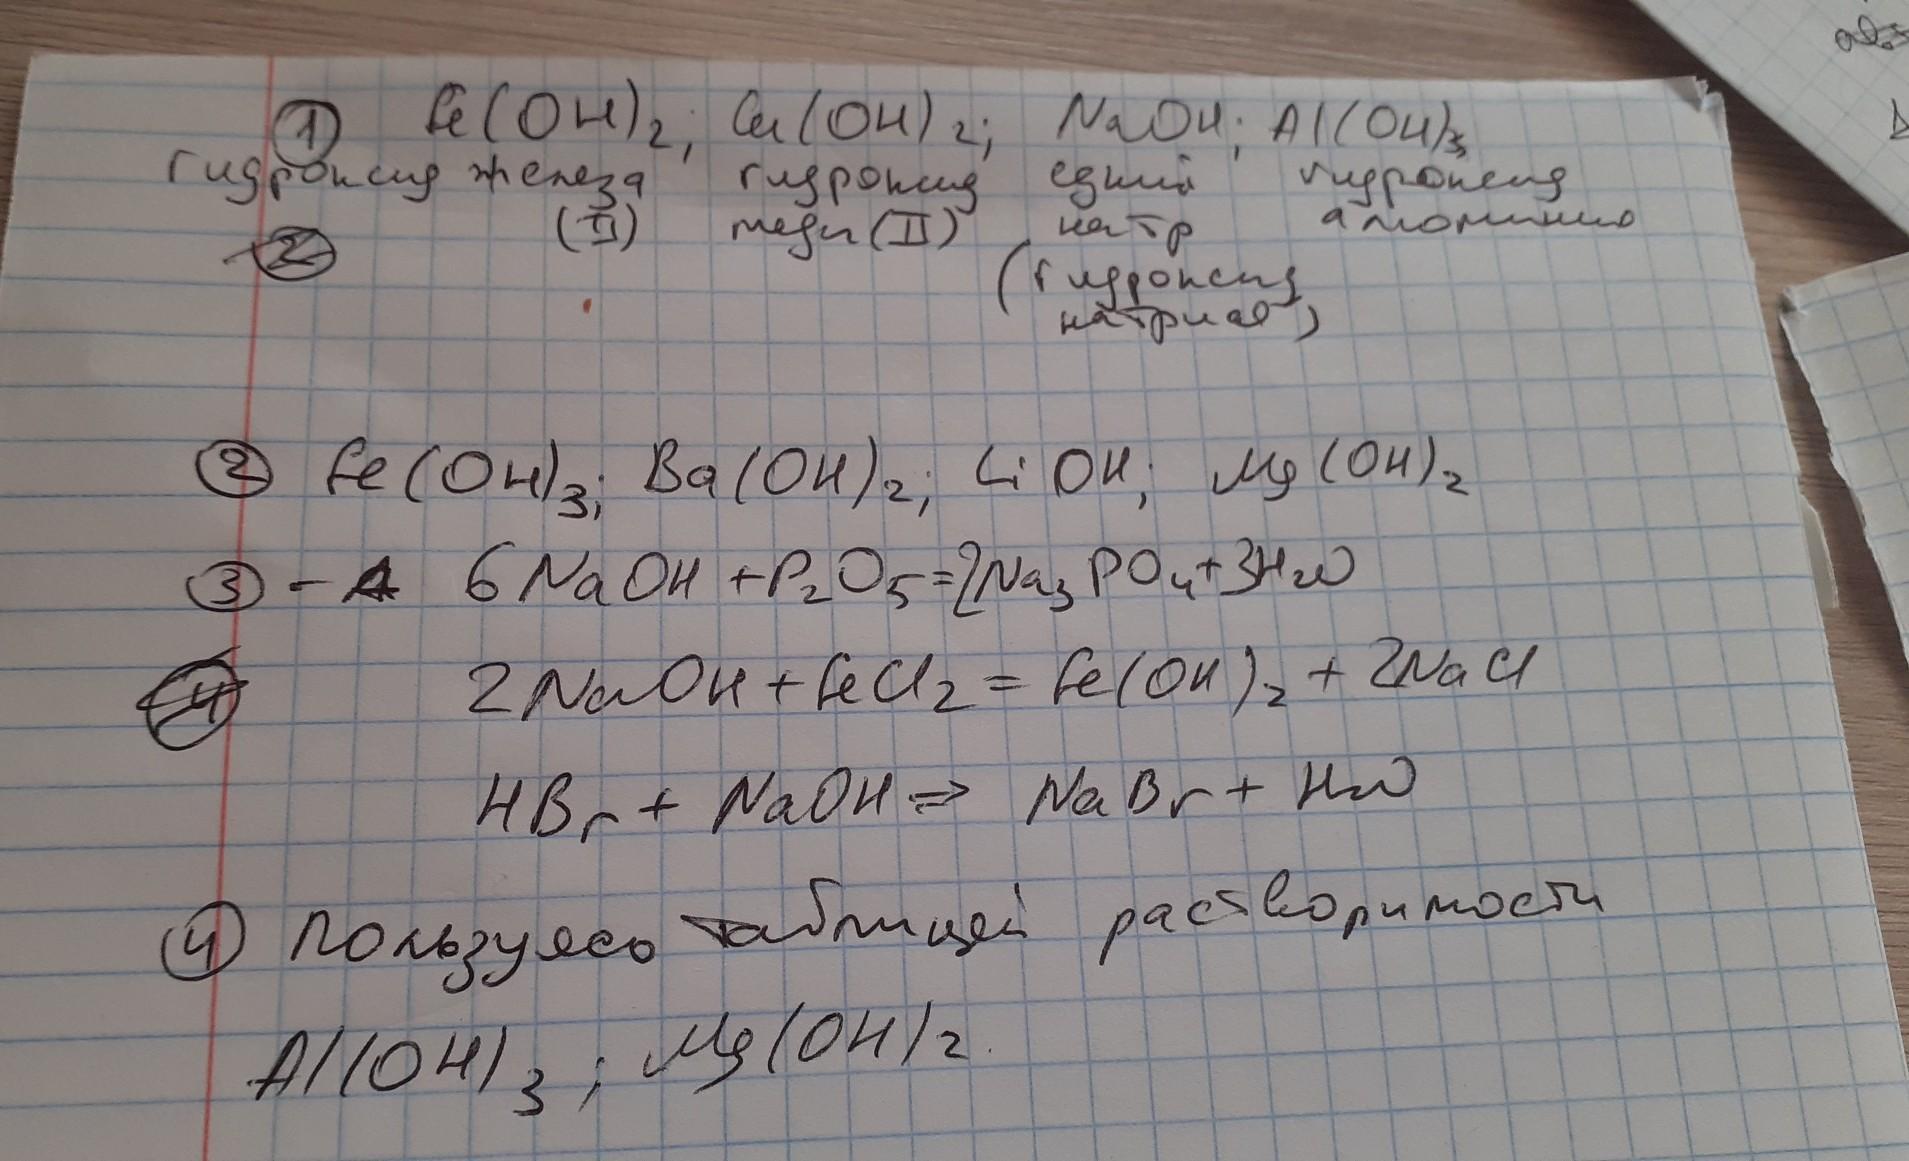 ① Fe(OH)₂; Cu(OH)₂; NaOH; Al(OH)₃
гидроксид железа гидроксид едкий гидроксид
(II) меди (II) натр алюминию
(гидроксид
натрия)
② Fe(OH)₃; Ba(OH)₂; LiOH; Mg(OH)₂
③ – А 6NaOH + P₂O₅ = 2Na₃PO₄ + 3H₂O
2NaOH + FeCl₂ = Fe(OH)₂ + 2NaCl
HBr + NaOH ⇒ NaBr + H₂O
④ Пользуясь таблицей растворимости
Al(OH)₃; Mg(OH)₂.